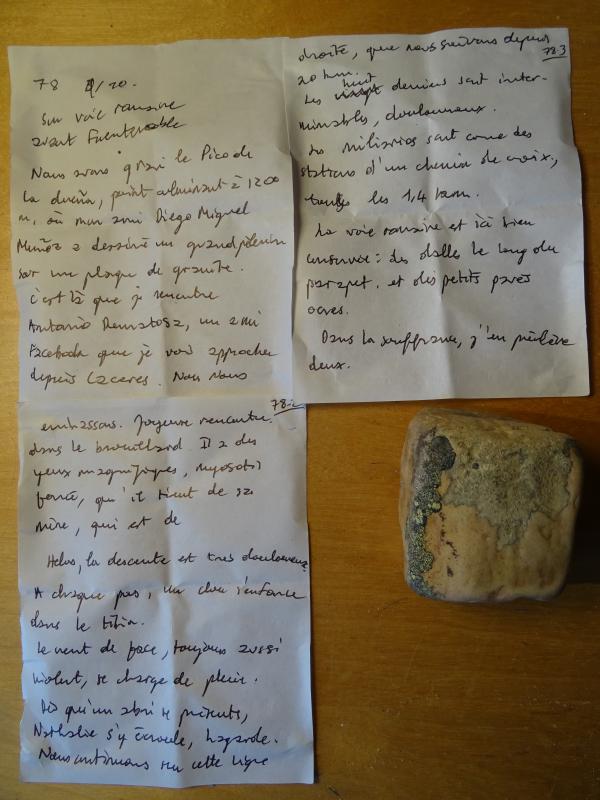 78 /20.
Sur voie romaine
avant Fuenterroble
Nous avons gravi le Pico de
La dueña, point culminant à 1200
m, où mon ami Diego Miguel
Muñoz a dessiné un grand pèlerin
sur une plaque de granite.
C'est là que je rencontre
Antonio, un ami
Facebook que je vois approcher
depuis Caceres. Nous nous
78.2
embrassons. Joyeuse rencontre
dans le brouillard. Il a des
yeux magnifiques, myosotis
foncé, qu'il tient de sa
mère, qui est de
Helas, la descente est très douloureuse
A chaque pas, un clou s'enfonce
dans le tibia.
Le vent de face, toujours aussi
violent, se charge de pluie.
Dès qu'un abri se présente,
Nathalie s'y écroule, hagarde.
Nous continuons sur cette ligne
78.3
droite, que nous suivons depuis
20 km.
Les huit derniers sont inter-
minables, douloureux.
Les miliarios sont comme des
stations d'un chemin de croix,
tous les 1,4 km.
La voie romaine est ici bien
conservée : des dalles le long du
parapet, et des petits pavés
ocres.
Dans la souffrance, j'en prélève
deux.